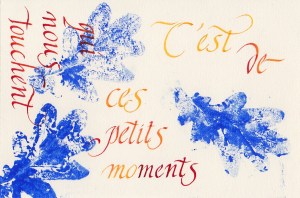 C'est
de
ces
petits
moments
qui
nous
touchent